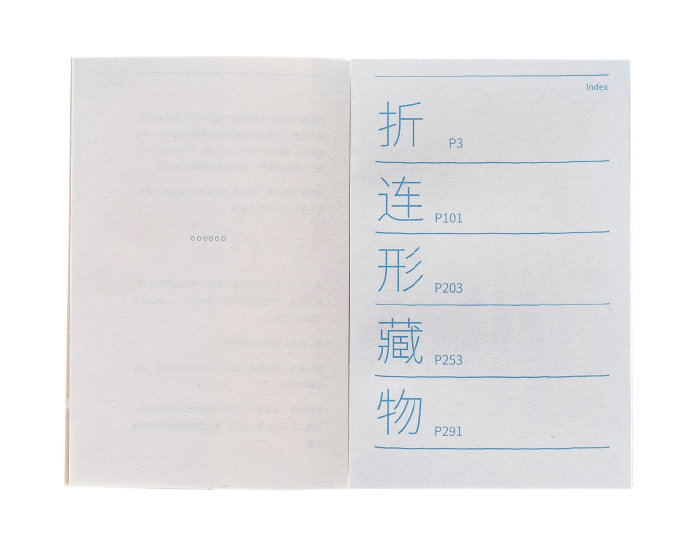 。。。。。。
Index
折 P3
连 P101
形 P203
藏 P253
物 P291